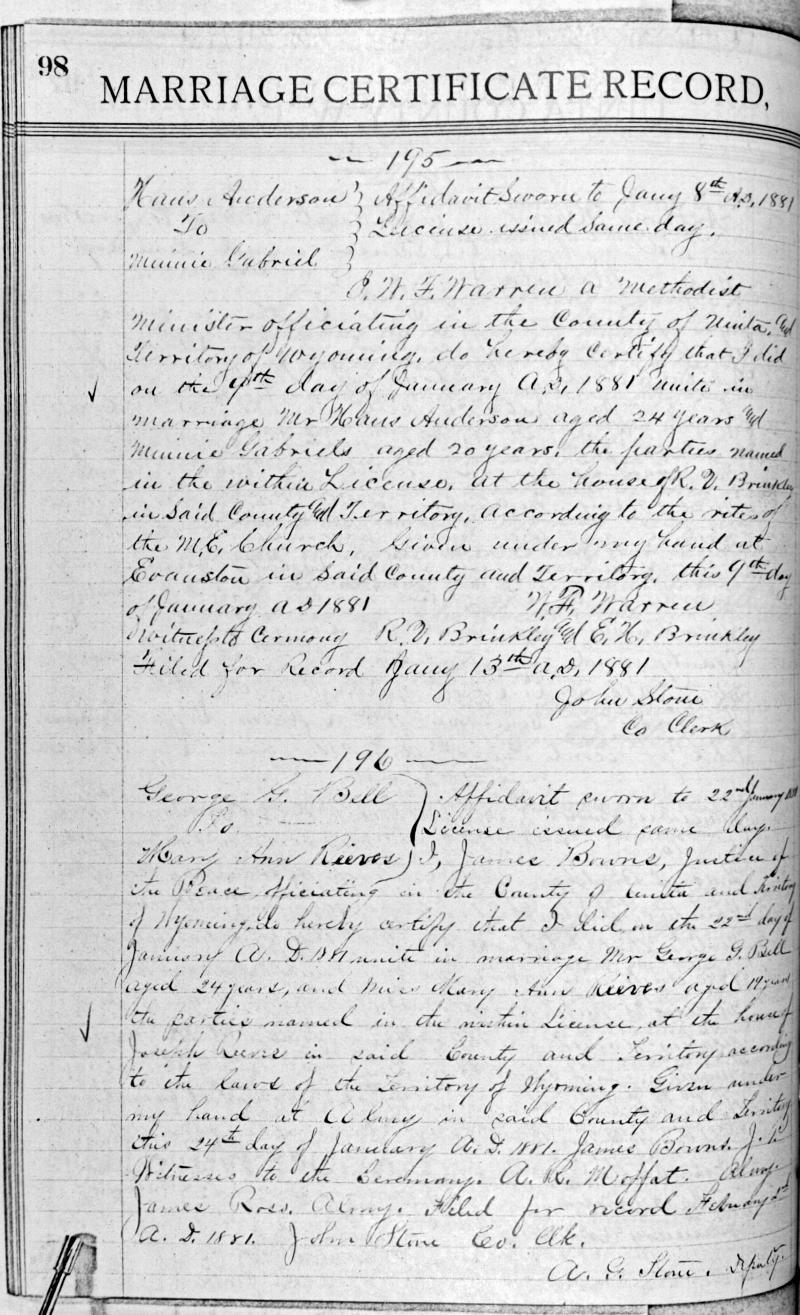 98
MARRIAGE CERTIFICATE RECORD,
195
Hans Anderson } Affidavit Sworn to Jany 8th A.D. 1881
To } License issued Same day.
Minnie Gabriel }
I, W. F. Warren a Methodist
Minister officiating in the County of Uinta, and
Territory of Wyoming, do hereby Certify that I did
on the 9th day of January A.D. 1881 unite in
marriage Mr Hans Anderson aged 24 years and
Minnie Gabriels aged 20 years, the parties named
in the within License, at the house of R. V. Brinkley
in Said County and Territory, according to the rites of
the M.E. Church, Given under my hand at
Evanston in Said County and Territory, this 9th day
of January A D 1881 W. F. Warren
Witness to Cermony R. V. Brinkley and E. H. Brinkley
Filed for Record Jany 13th A.D. 1881
John Stone
Co Clerk
196
George G. Bell } Affidavit sworn to 22nd January
To } License issued same day.
Mary Ann Reeves } I, James Bowns, Justice of
the Peace officiating in the County of Uinta and Territory
of Wyoming, do hereby certify that I did on the 22nd day of
January A. D. 1881 unite in marriage Mr George G. Bell
aged 24 years, and Miss Mary Ann Reeves aged 19 years
the parties named in the within License, at the house of
Joseph Reeves in said County and Territory according
to the laws of the Territory of Wyoming. Given under
my hand at Almy in said County and Territory
this 24th day of January A. D. 1881. James Bowns J. P.
Witnesses to the Ceremony. A. R. Moffat. Almy.
James Ross. Almy. Filed for record February
A. D. 1881. John Stone Co. Clk.
A. G. Stone. Deputy.